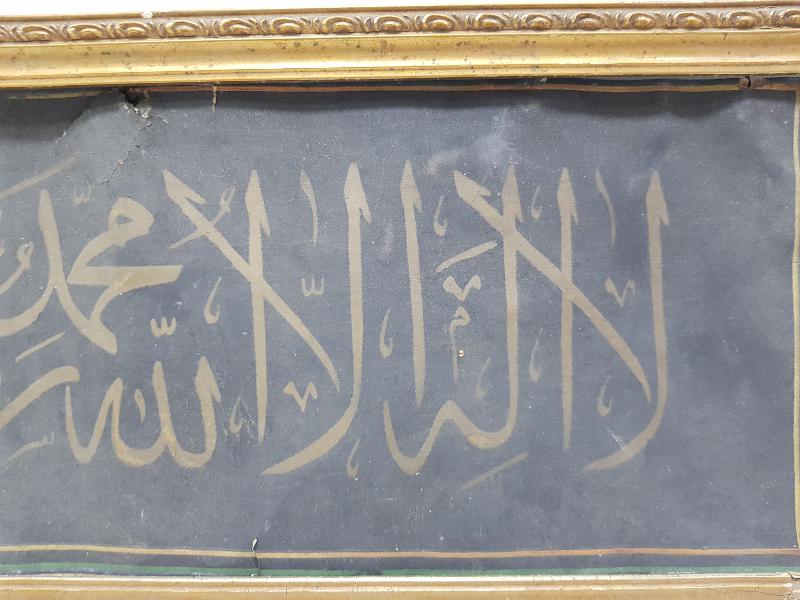 لا اله الا الله محمد